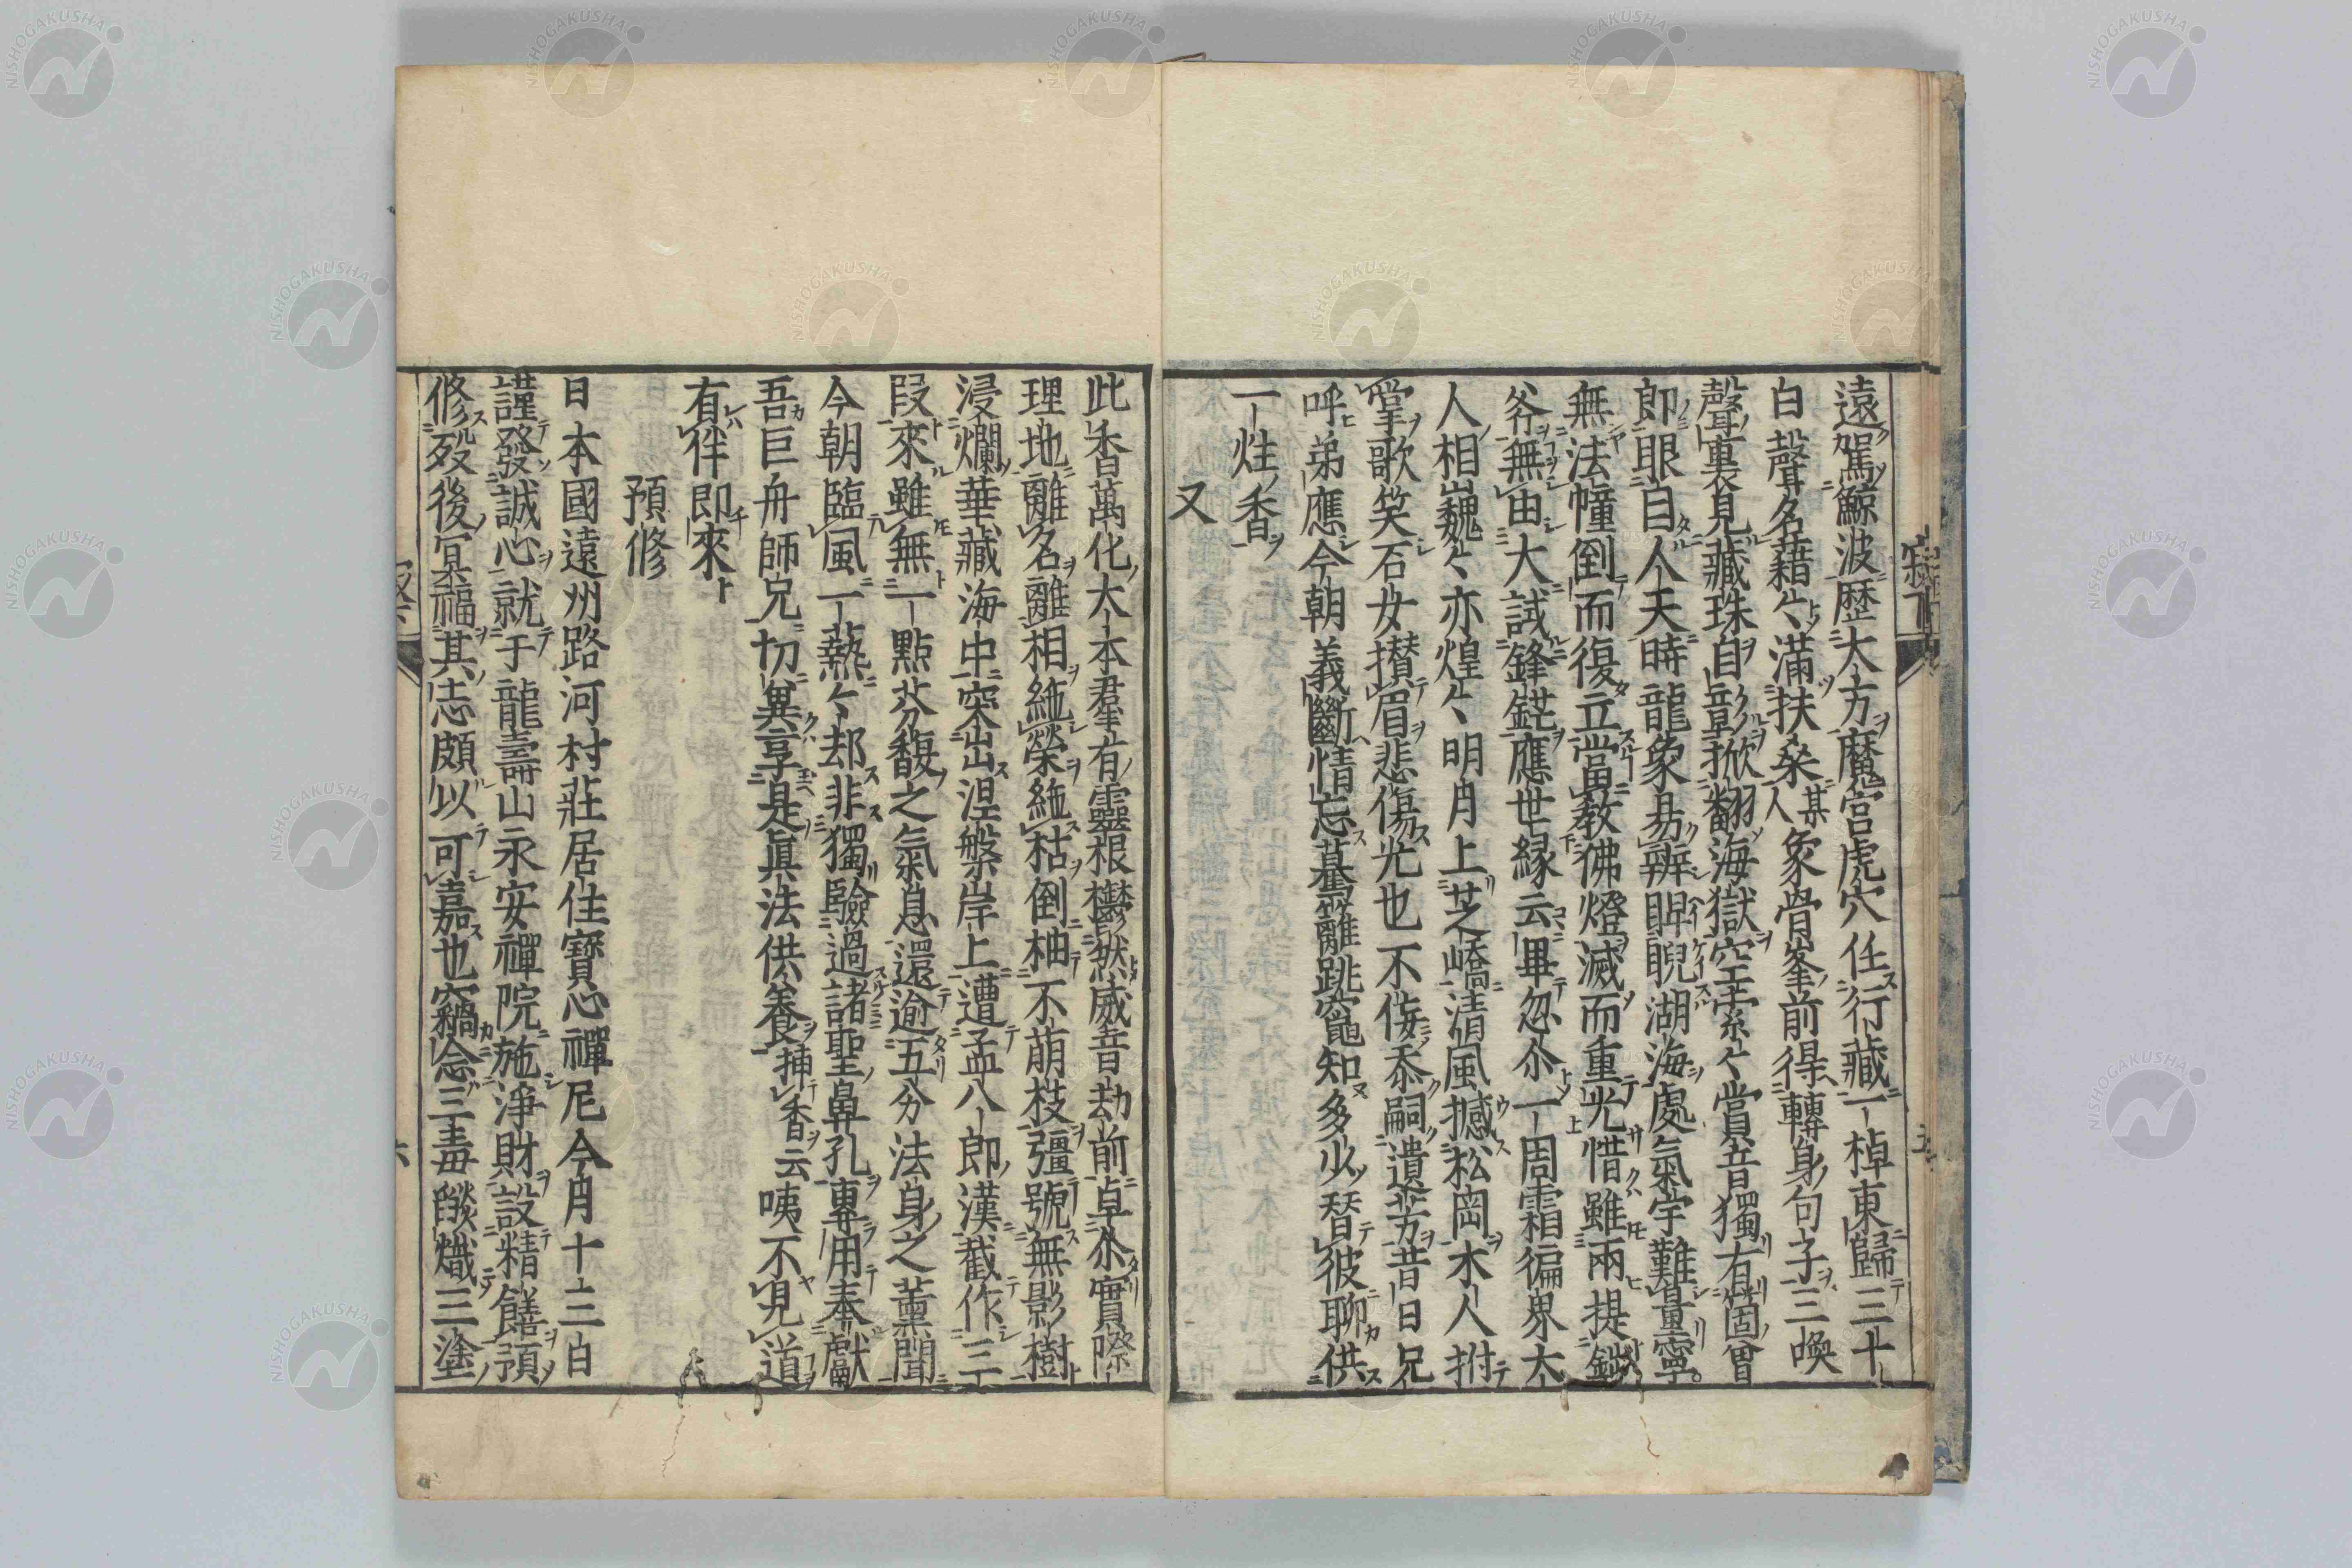 遠駕鯨波歴大方魔宮虎穴任行藏一棹東歸三十
白聲名藉々滿扶桑某人象骨峯前得轉身句子三喚
聲裏見藏珠自彰掀翻海嶽空索々賞音獨有箇曾
郎眼目人天時龍象易辨睥睨湖海處氣宇難量寧
無法幢倒而復立當教佛燈滅而重光惜雖兩提
斧無由大試鋒鋩應世縁云畢忽尒一周霜徧界大
人相巍々亦煌々明月上芝嶠清風撼松岡木人拊
掌歌笑石女攅眉悲傷光也不侫忝嗣遺芳昔日兄
呼弟應今朝義斷情忘驀離跳窠知多少替彼聊供
一炷香
又
此香萬化大本羣有靈根欝然威音劫前卓尒實際
理地離名離相絶榮絶枯倒抽不萌枝彊號無影樹
浸爛華藏海中突出涅槃岸上遭孟八郎漢截作三
段來雖無一點芬馥之氣息還逾五分法身之薫聞
今朝臨風一爇々却非獨驗過諸聖鼻孔專用奉獻
吾巨舟師兄切異享是眞法供養挿香云咦不見道
有伴即來
預修
日本國遠州路河村莊居住寶心禪尼今月十三白
謹發誠心就于龍壽山永安禪院施淨財設精饍預
修歿後冥福其志頗以可嘉也竊念三毒燄熾三塗
NISHOGAKUSHA